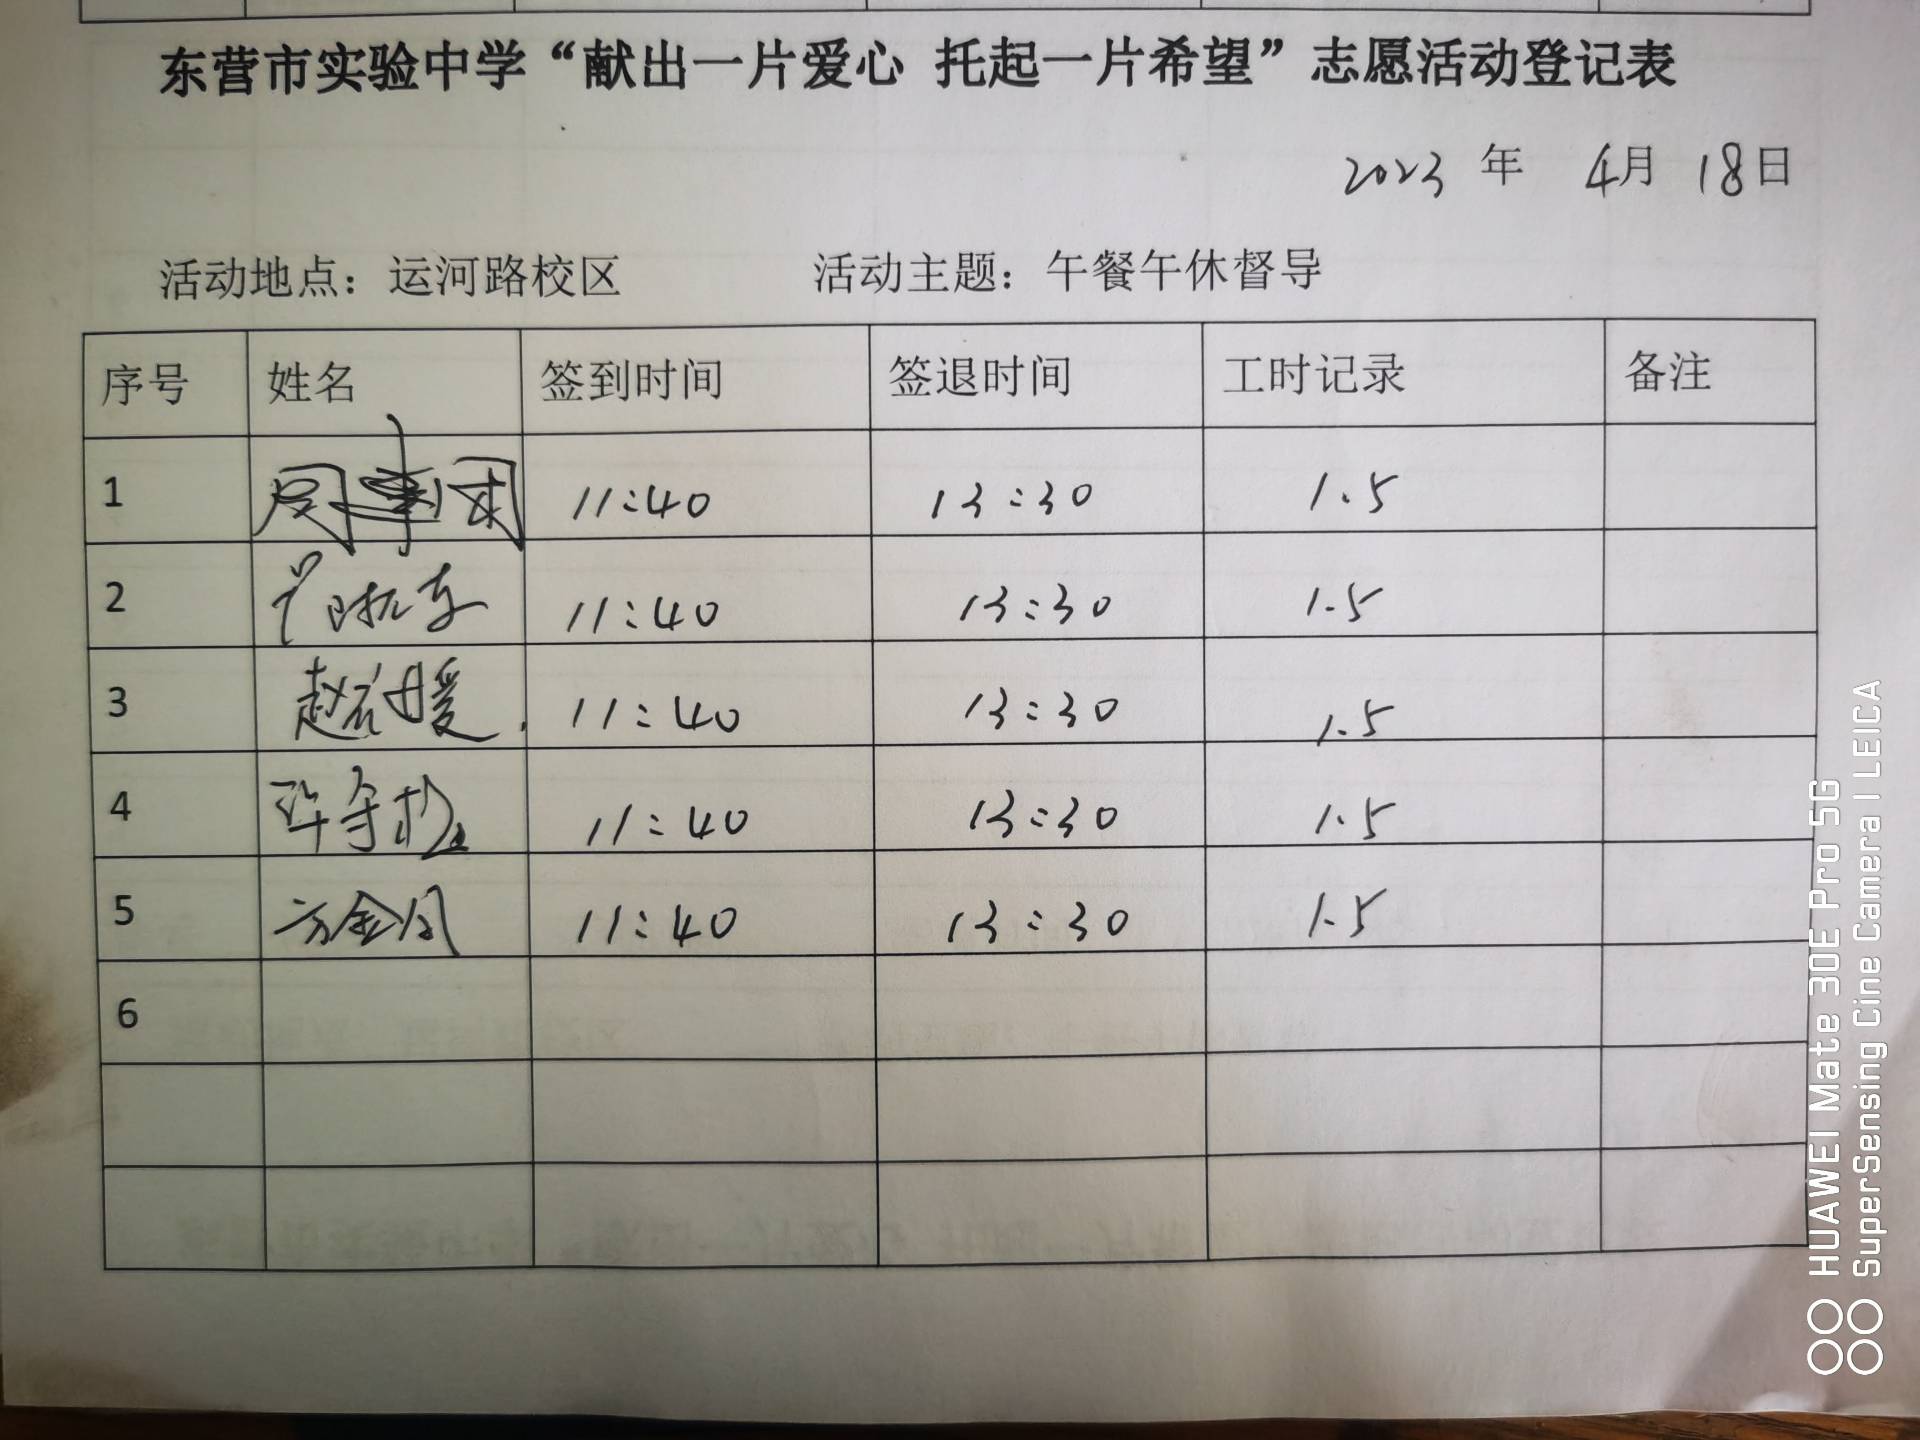 东营市实验中学“献出一片爱心 托起一片希望”志愿活动登记表
2023 年 4月 18日
活动地点：运河路校区 活动主题：午餐午休督导
序号 姓名 签到时间 签退时间 工时记录 备注
1 11:40 13:30 1.5
2 11:40 13:30 1.5
3 赵 媛 11:40 13:30 1.5
4 11:40 13:30 1.5
5 方金凤 11:40 13:30 1.5
6
HUAWEI Mate 30E Pro 5G
SuperSensing Cine Camera | LEICA